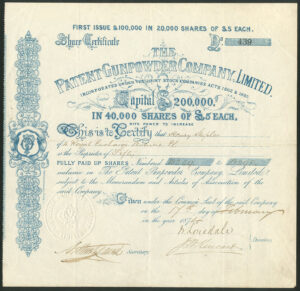 FIRST ISSUE £100,000 IN 20,000 SHARES OF £5 EACH.
Share Certificate
No. 439
THE
PATENT GUNPOWDER COMPANY, LIMITED,
INCORPORATED UNDER THE JOINT STOCK COMPANIES ACTS 1862 & 1867.
Capital £200,000,
IN 40,000 SHARES OF £5 EACH.
WITH POWER TO INCREASE
This is to Certify that
of
is the Proprietor of Fifty
FULLY PAID UP SHARES Numbered
inclusive in The Patent Gunpowder Company, Limited,
subject to the Memorandum and Articles of Association of the
said Company.
Given under the Common Seal of the said Company
on the 17th day of February
in the year 18
Secretary.
Directors.